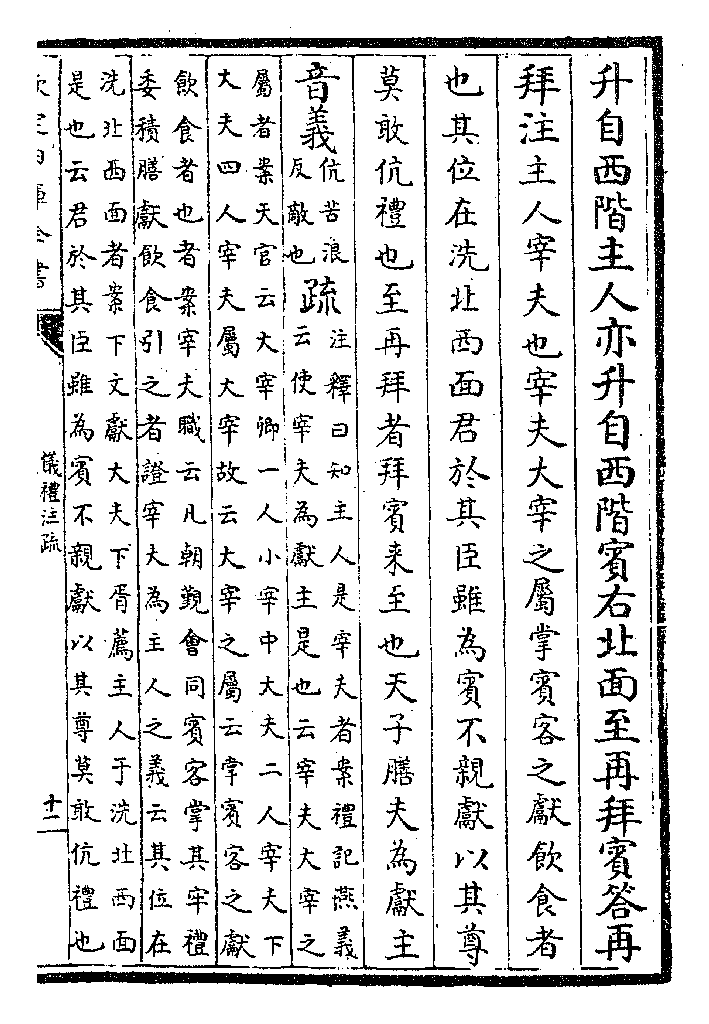 升自西階主人亦升自西階賓右北面至再拜賓答再
拜注主人宰夫也宰夫大宰之屬掌賓客之獻飲食者
也其位在洗北西面君於其臣雖為賓不親獻以其尊
莫敢伉禮也至再拜者拜賓来至也天子膳夫為獻主
音義
伉苦浪
反敵也
疏
注釋曰知主人是宰夫者案禮記燕義
云使宰夫為獻主是也云宰夫大宰之
屬者案天官云大宰卿一人小宰中大夫二人宰夫下
大夫四人宰夫屬大宰故云大宰之屬云掌賓客之獻
飲食者也者案宰夫職云凡朝覲會同賓客掌其牢禮
委積膳獻飲食引之者證宰夫為主人之義云其位在
洗北西面者案下文獻大夫下胥薦主人于洗北西面
是也云君於其臣雖為賓不親獻以其尊莫敢伉禮也
儀禮注疏
十二